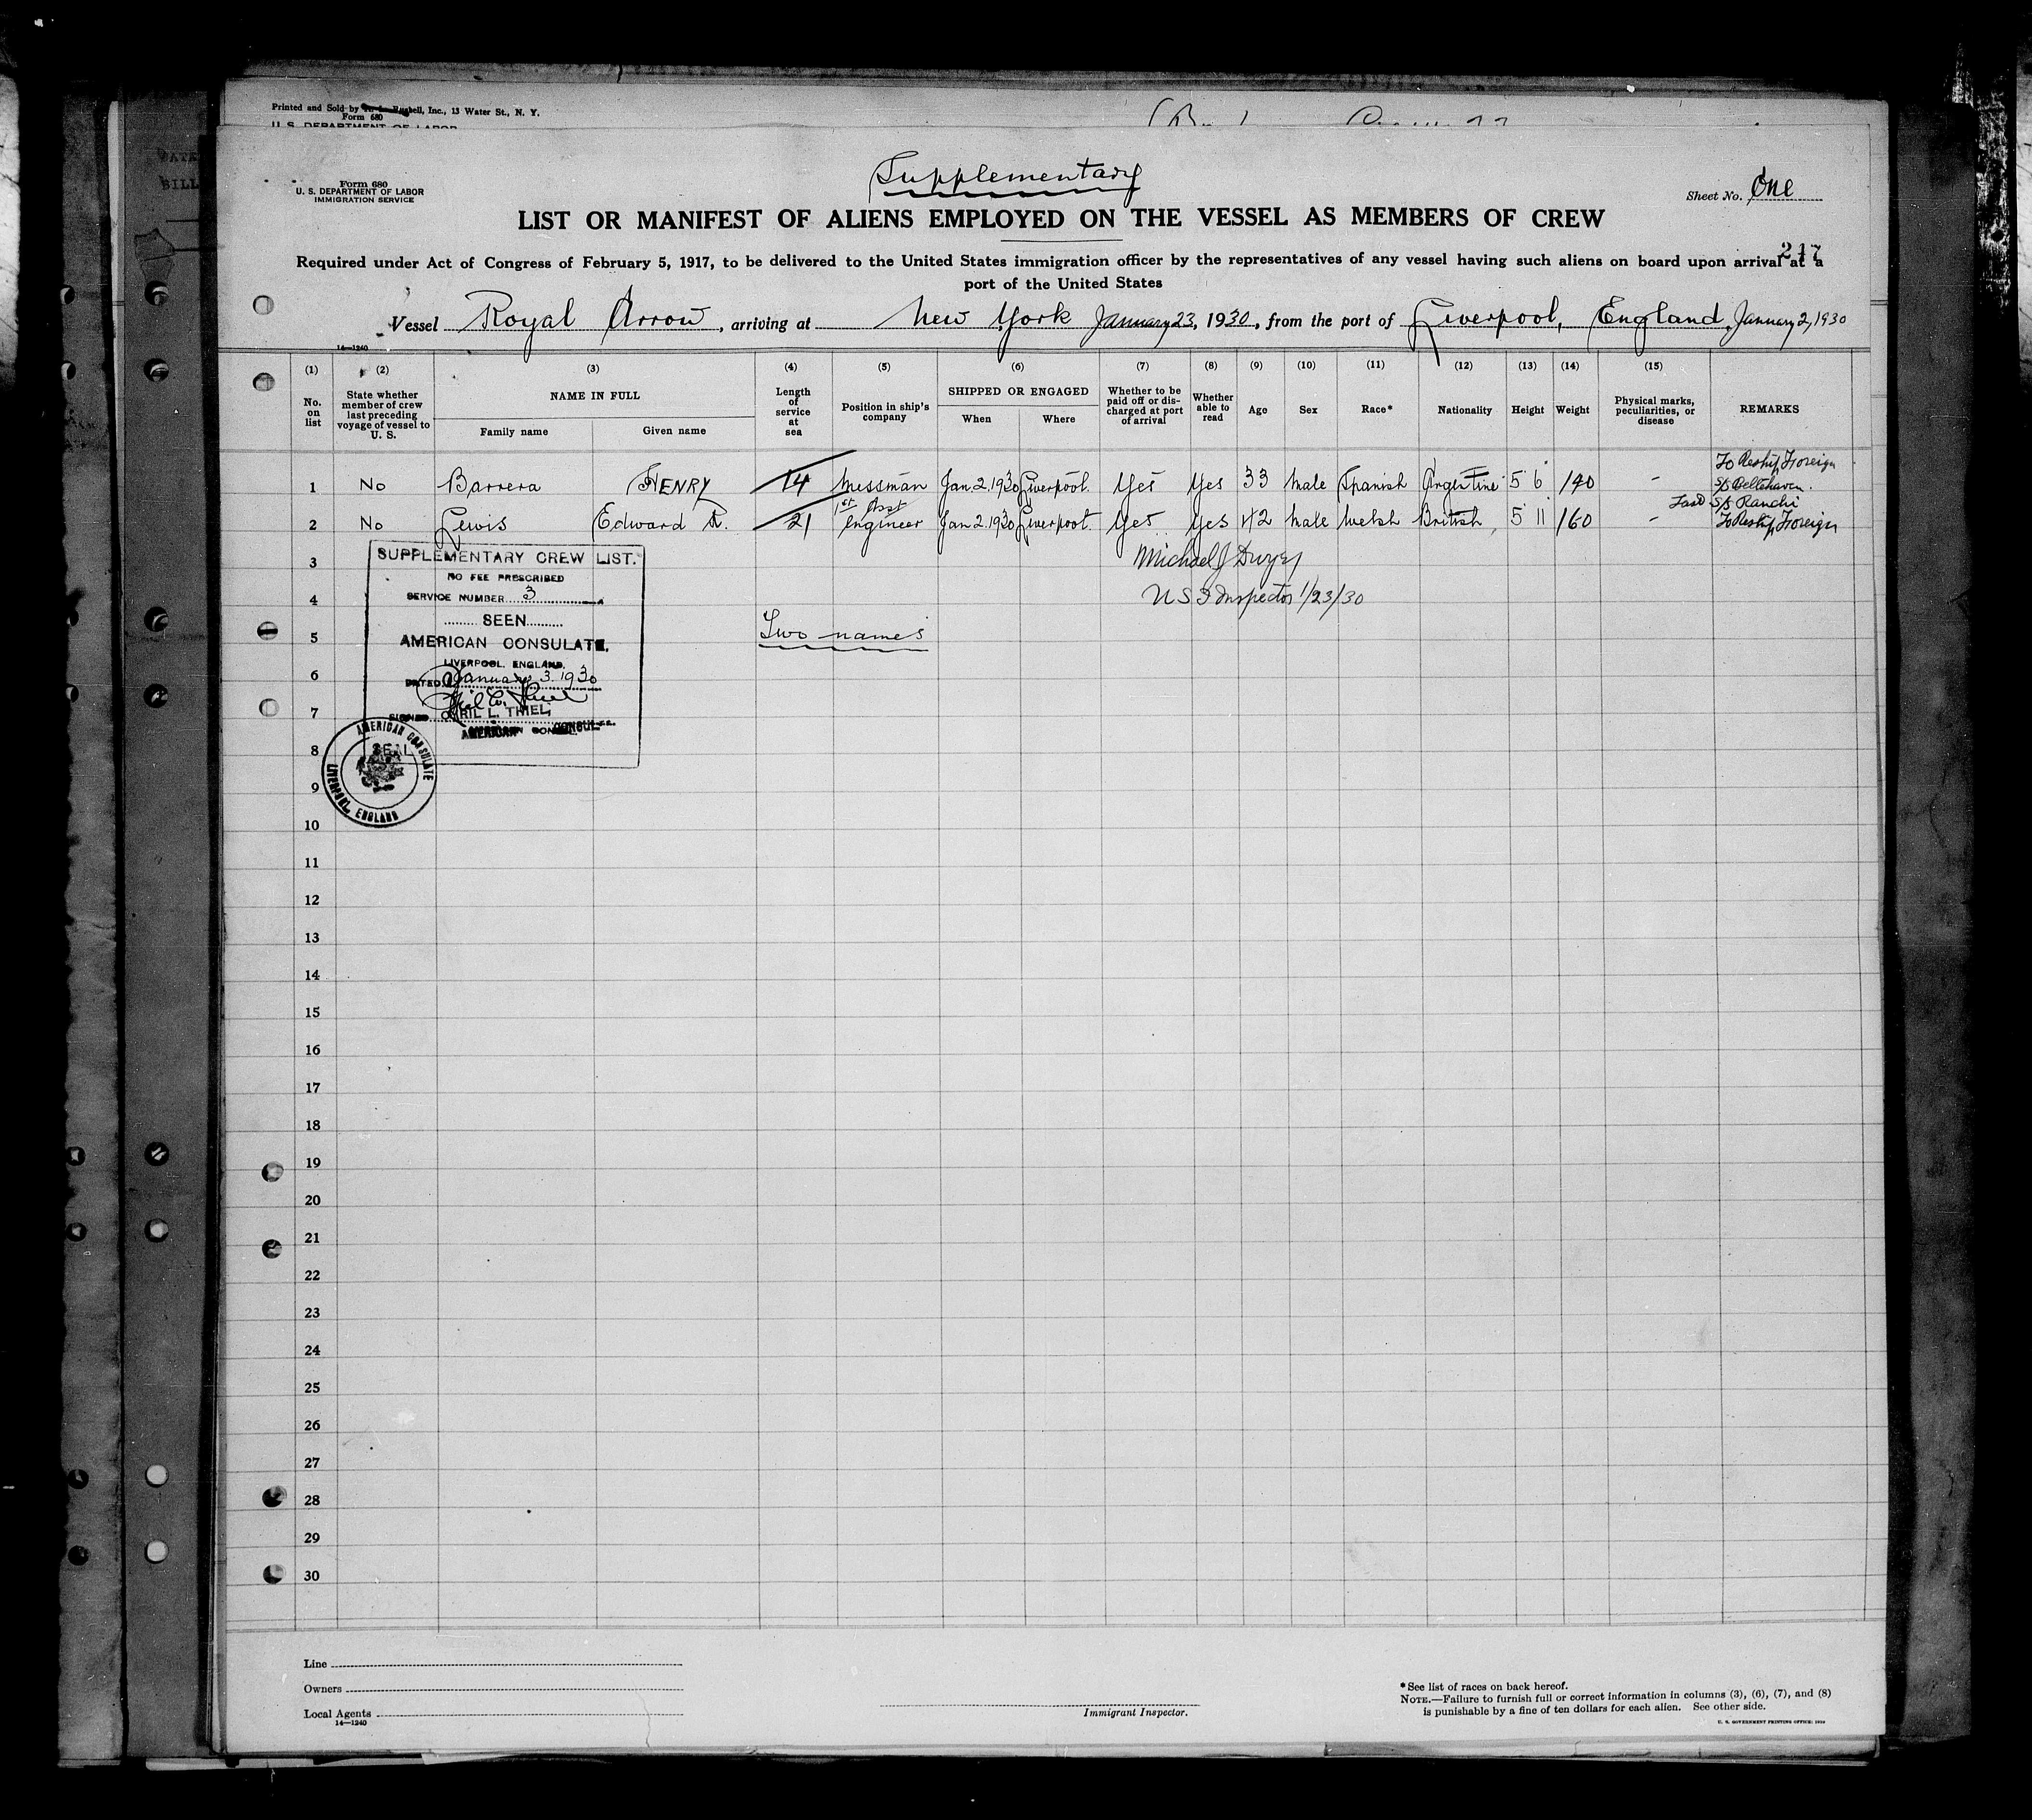 Printed and Sold by Inc., 13 Water St., N. Y.
Form 680
U. S. DEPARTMENT OF LABOR
Supplementary
Form 680
U. S. DEPARTMENT OF LABOR
IMMIGRATION SERVICE
Sheet No. One
LIST OR MANIFEST OF ALIENS EMPLOYED ON THE VESSEL AS MEMBERS OF CREW
247
Required under Act of Congress of February 5, 1917, to be delivered to the United States immigration officer by the representatives of any vessel having such aliens on board upon arrival at a
port of the United States
Vessel Royal Arrow, arriving at New York January 23, 1930, from the port of Liverpool, England, January 2, 1930
14—1240
(1) (2) (3) (4) (5) (6) (7) (8) (9) (10) (11) (12) (13) (14) (15)
No. on list
State whether member of crew last preceding voyage of vessel to U. S.
NAME IN FULL
Family name
Given name
Length of service at sea
Position in ship's company
SHIPPED OR ENGAGED
When
Where
Whether to be paid off or discharged at port of arrival
Whether able to read
Age
Sex
Race*
Nationality
Height
Weight
Physical marks, peculiarities, or disease
REMARKS
1 No Barrera HENRY 14 Messman Jan. 2. 1930 Liverpool. Yes Yes 33 Male Spanish Argentine 5 6 140 - To Reship Foreign
S/S Bellehaven.
2 No Lewis Edward A. 21 1st Asst Engineer Jan 2. 1930 Liverpool. Yes Yes 42 Male Welsh British, 5 11 160 - S/S Ranchi
To Reship Foreign
3 Michael J Dwyer
4 U S I Inspector 1/23/30
5 Two names
SUPPLEMENTARY CREW LIST.
NO FEE PRESCRIBED
SERVICE NUMBER 3
SEEN
AMERICAN CONSULATE,
LIVERPOOL, ENGLAND,
DATED January 3. 1930
SIGNED CYRIL L. THIEL,
AMERICAN CONSUL
SEAL
AMERICAN CONSULATE
LIVERPOOL, ENGLAND
6
7
8
9
10
11
12
13
14
15
16
17
18
19
20
21
22
23
24
25
26
27
28
29
30
Line
Owners
Local Agents
14—1240
Immigrant Inspector.
*See list of races on back hereof.
NOTE.—Failure to furnish full or correct information in columns (3), (6), (7), and (8)
is punishable by a fine of ten dollars for each alien. See other side.